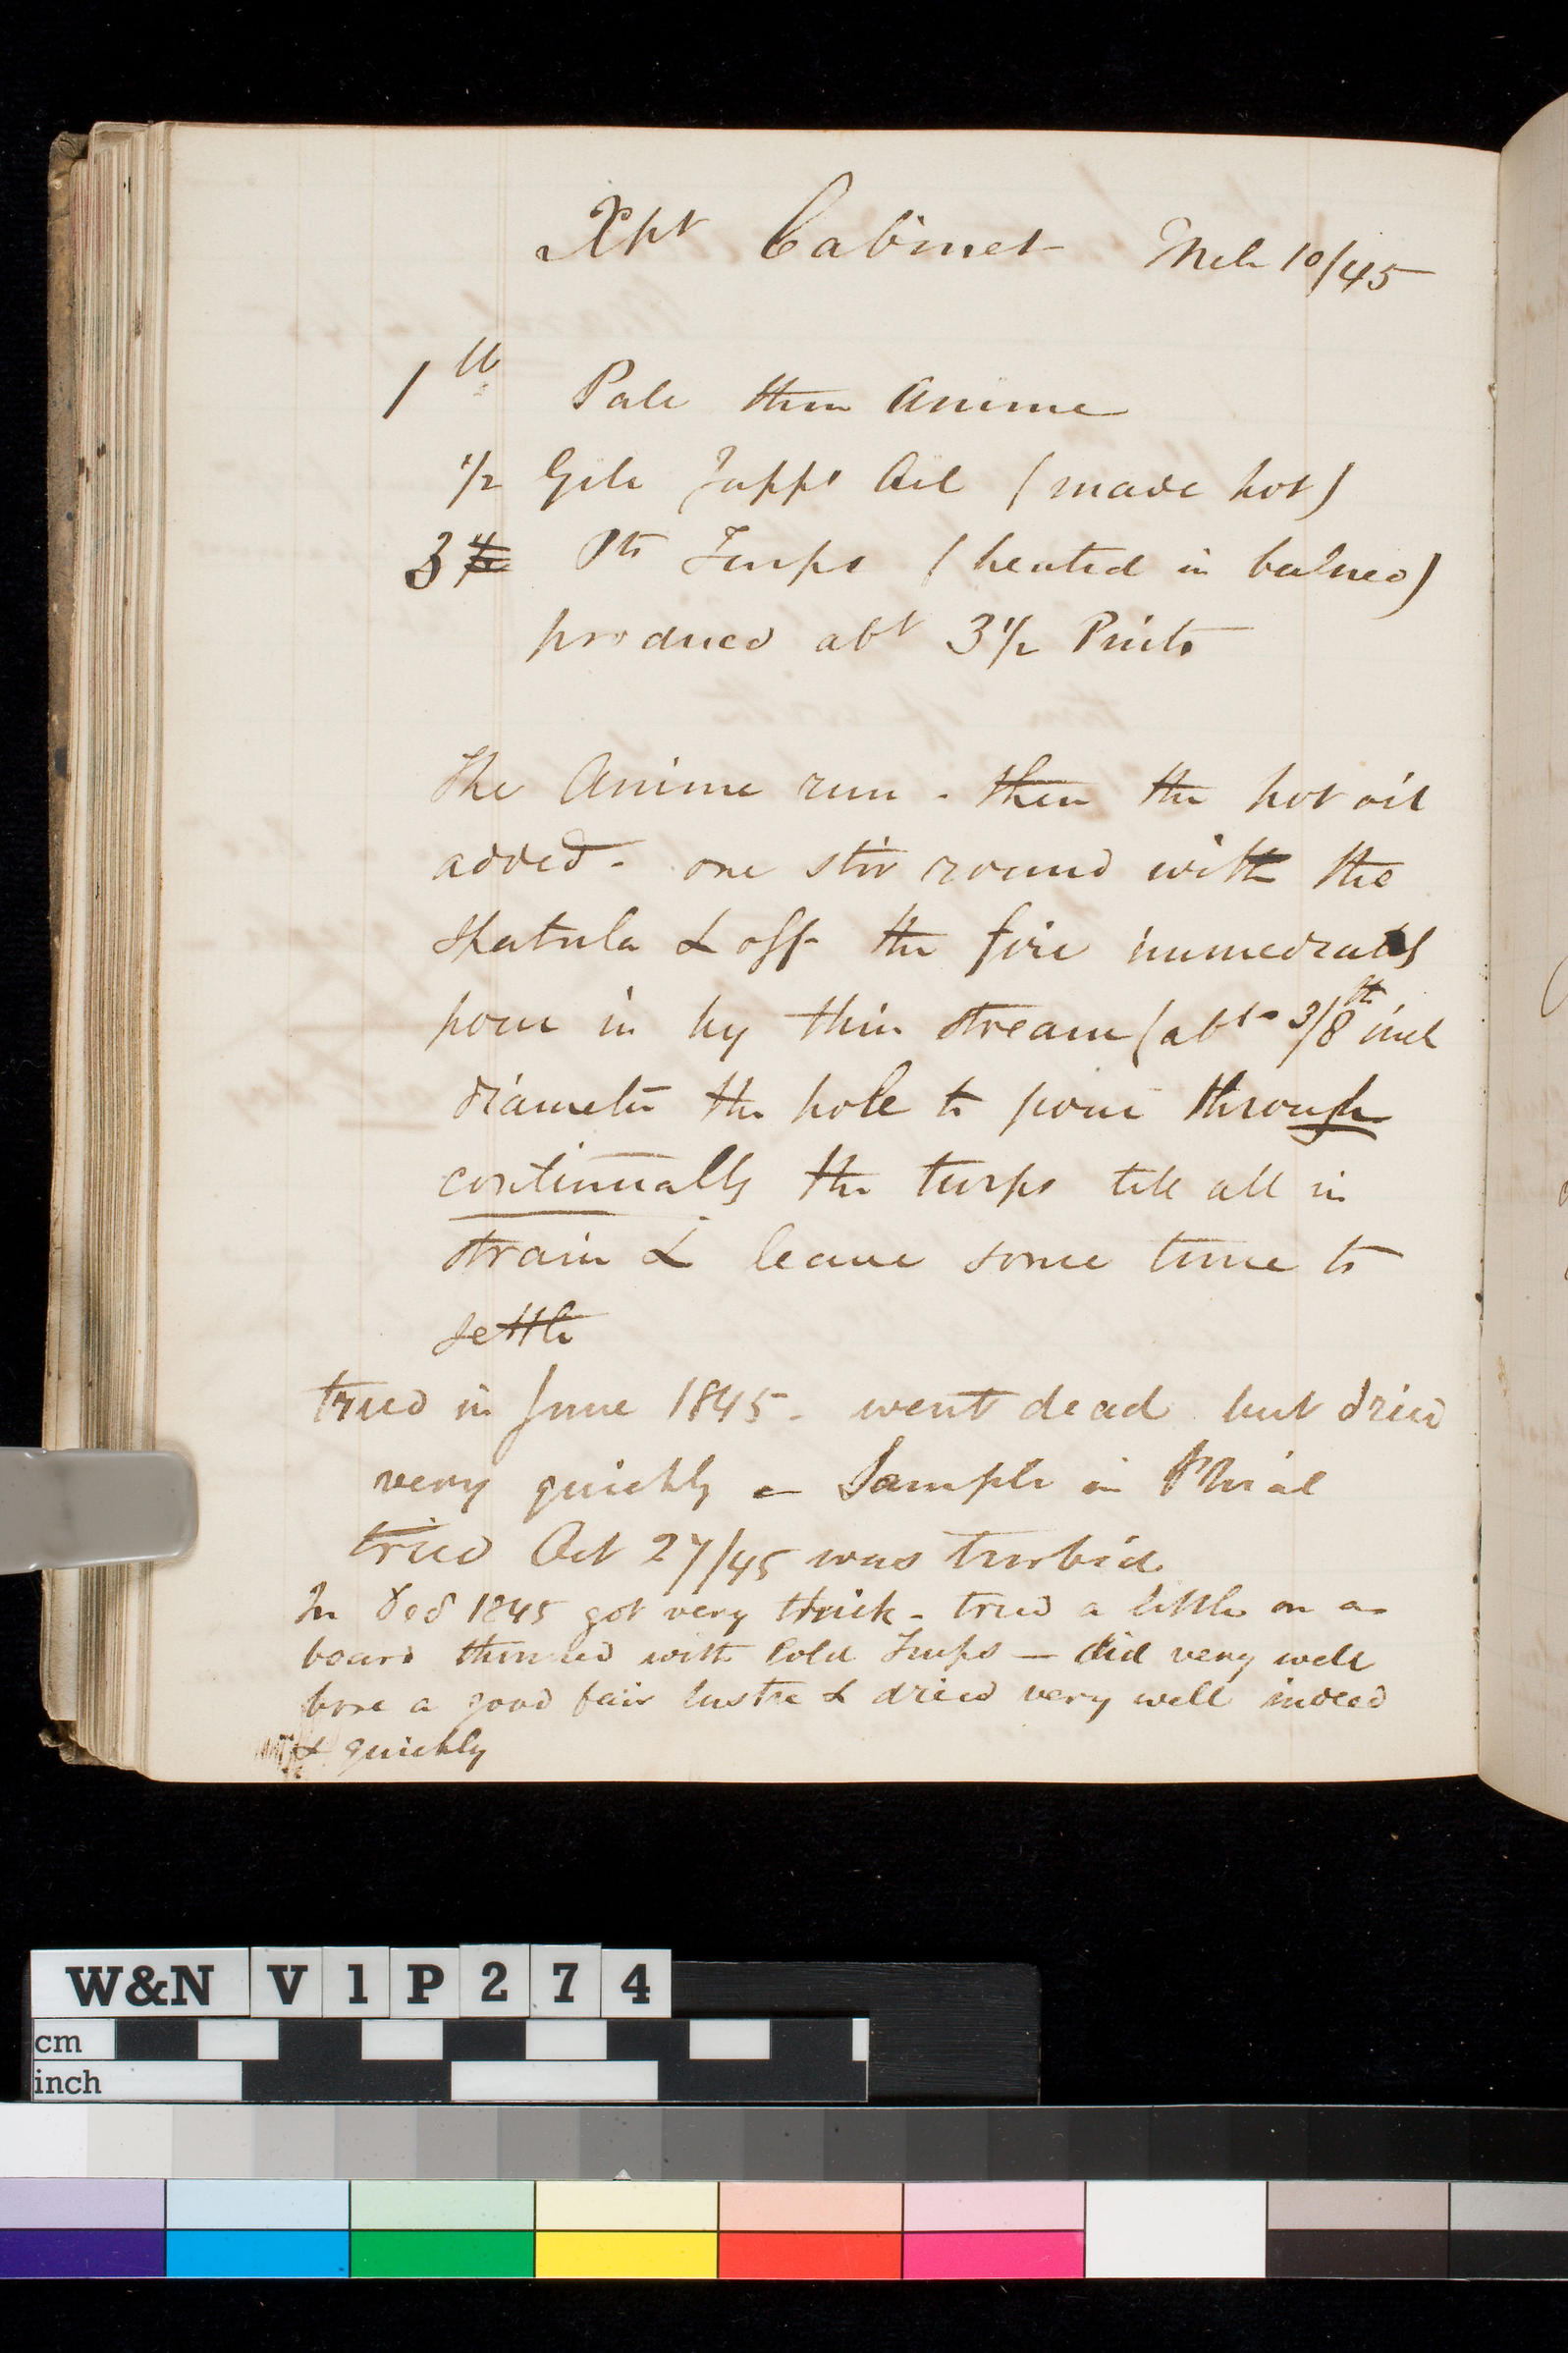 Xpt Cabinet Mch 10/45
1 lb Pale thin Anime
1/2 Gill Jupps Oil (made hot)
3 Pts Turps (heated in balneo)
produced abt 3 1/2 Pints
The Anime run - then the hot oil
added - one stir round with the
spatula & off the fire immediately
pour in by thin stream (abt 3/8th inch
diameter the hole to pour through
continually the turps till all in
strain & leave some time to
settle
tried in June 1845 - went dead but dried
very quickly - Sample in Phial
tried Oct 27/45 was turbid
In 1845 got very thick - tried a little on a
board thinned with Cold Turps - did very well
bore a good fair lustre & dried very well indeed
& quickly
W&N V1P274
cm
inch